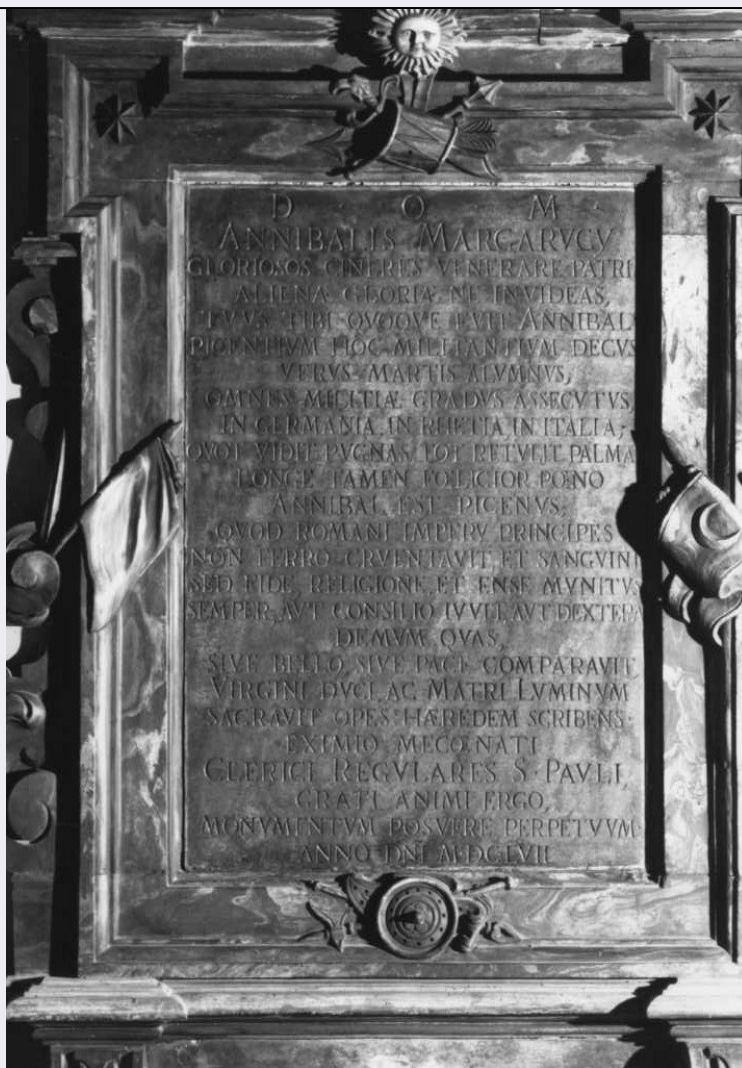 D · O · M ·
ANNIBALIS MARGARVCII
GLORIOSOS CINERES VENERARE PATRI
ALIENÆ GLORIÆ NE INVIDEAS,
TVVS TIBI QVOQVE FVIT ANNIBAL
PICENTIVM HOC MILITANTIVM DECVS
VERVS MARTIS ALVMNVS,
OMNES MILITIÆ GRADVS ASSECVTVS,
IN GERMANIA, IN RHETIA, IN ITALIA;
QVOT VIDIT PVGNAS, TOT RETVLIT PALMA
LONGE TAMEN FŒLICIOR POENO
ANNIBAL EST PICENVS;
QVOD ROMANI IMPERII PRINCIPES
NON FERRO CRVENTAVIT, ET SANGVINE
SED FIDE, RELIGIONE, ET ENSE MVNITVS
SEMPER, AVT CONSILIO IVVIT, AVT DEXTERA
DEMVM QVAS,
SIVE BELLO SIVE PACE COMPARAVIT,
VIRGINI DVCI, AC MATRI LVMINVM
SACRAVIT OPES HÆREDEM SCRIBENS·
EXIMIO MECŒNATI
CLERICI REGVLARES S· PAVLI,
GRATI ANIMI ERGO,
MONVMENTVM POSVERE PERPETVVM
ANNO DNI MDCLVII